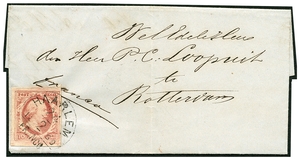 Welledelen
den Heer P. C. Loopuit
te
Rotterdam
franco
HAARLEM